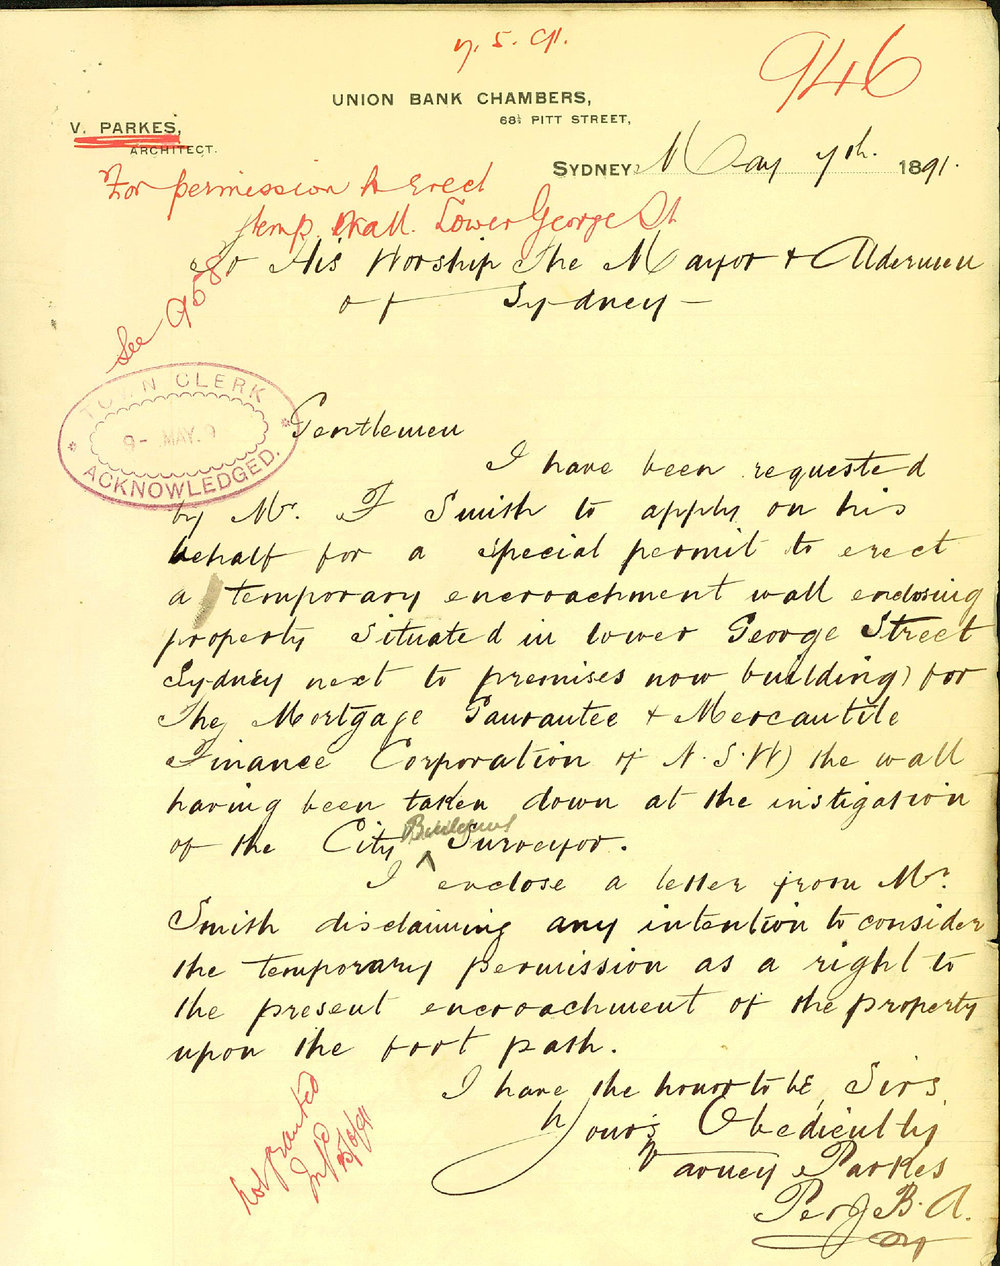 7. 5. 91.
946
UNION BANK CHAMBERS,
68½ PITT STREET,
V. PARKES,
ARCHITECT.
SYDNEY, May 7th. 1891.
For permission to Erect
temp. Wall. Lower George St
See 968
To His Worship The Mayor & Aldermen
of Sydney –
TOWN CLERK
9- MAY. 9
ACKNOWLEDGED.
Gentlemen
I have been requested
by Mr. F Smith to apply on his
behalf for a special permit to erect
a temporary encroachment wall enclosing
property situated in lower George Street
Sydney next to premises now building) for
The Mortgage Gaurantee & Mercantile
Finance Corporation of N.S.W) the wall
having been taken down at the instigation
of the City Building Surveyor.
I enclose a letter from Mr.
Smith disclaiming any intention to consider
the temporary permission as a right to
the present encroachment of the property
upon the foot path.
I have the honor to be, Sirs,
Yours Obediently
Varney Parkes
Per J B. A.
Not granted